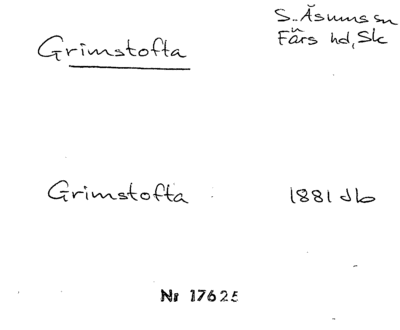 Grimstofta
S. Åsums sn
Färs hd, Sk
Grimstofta 1881 Jb
Nr 17625